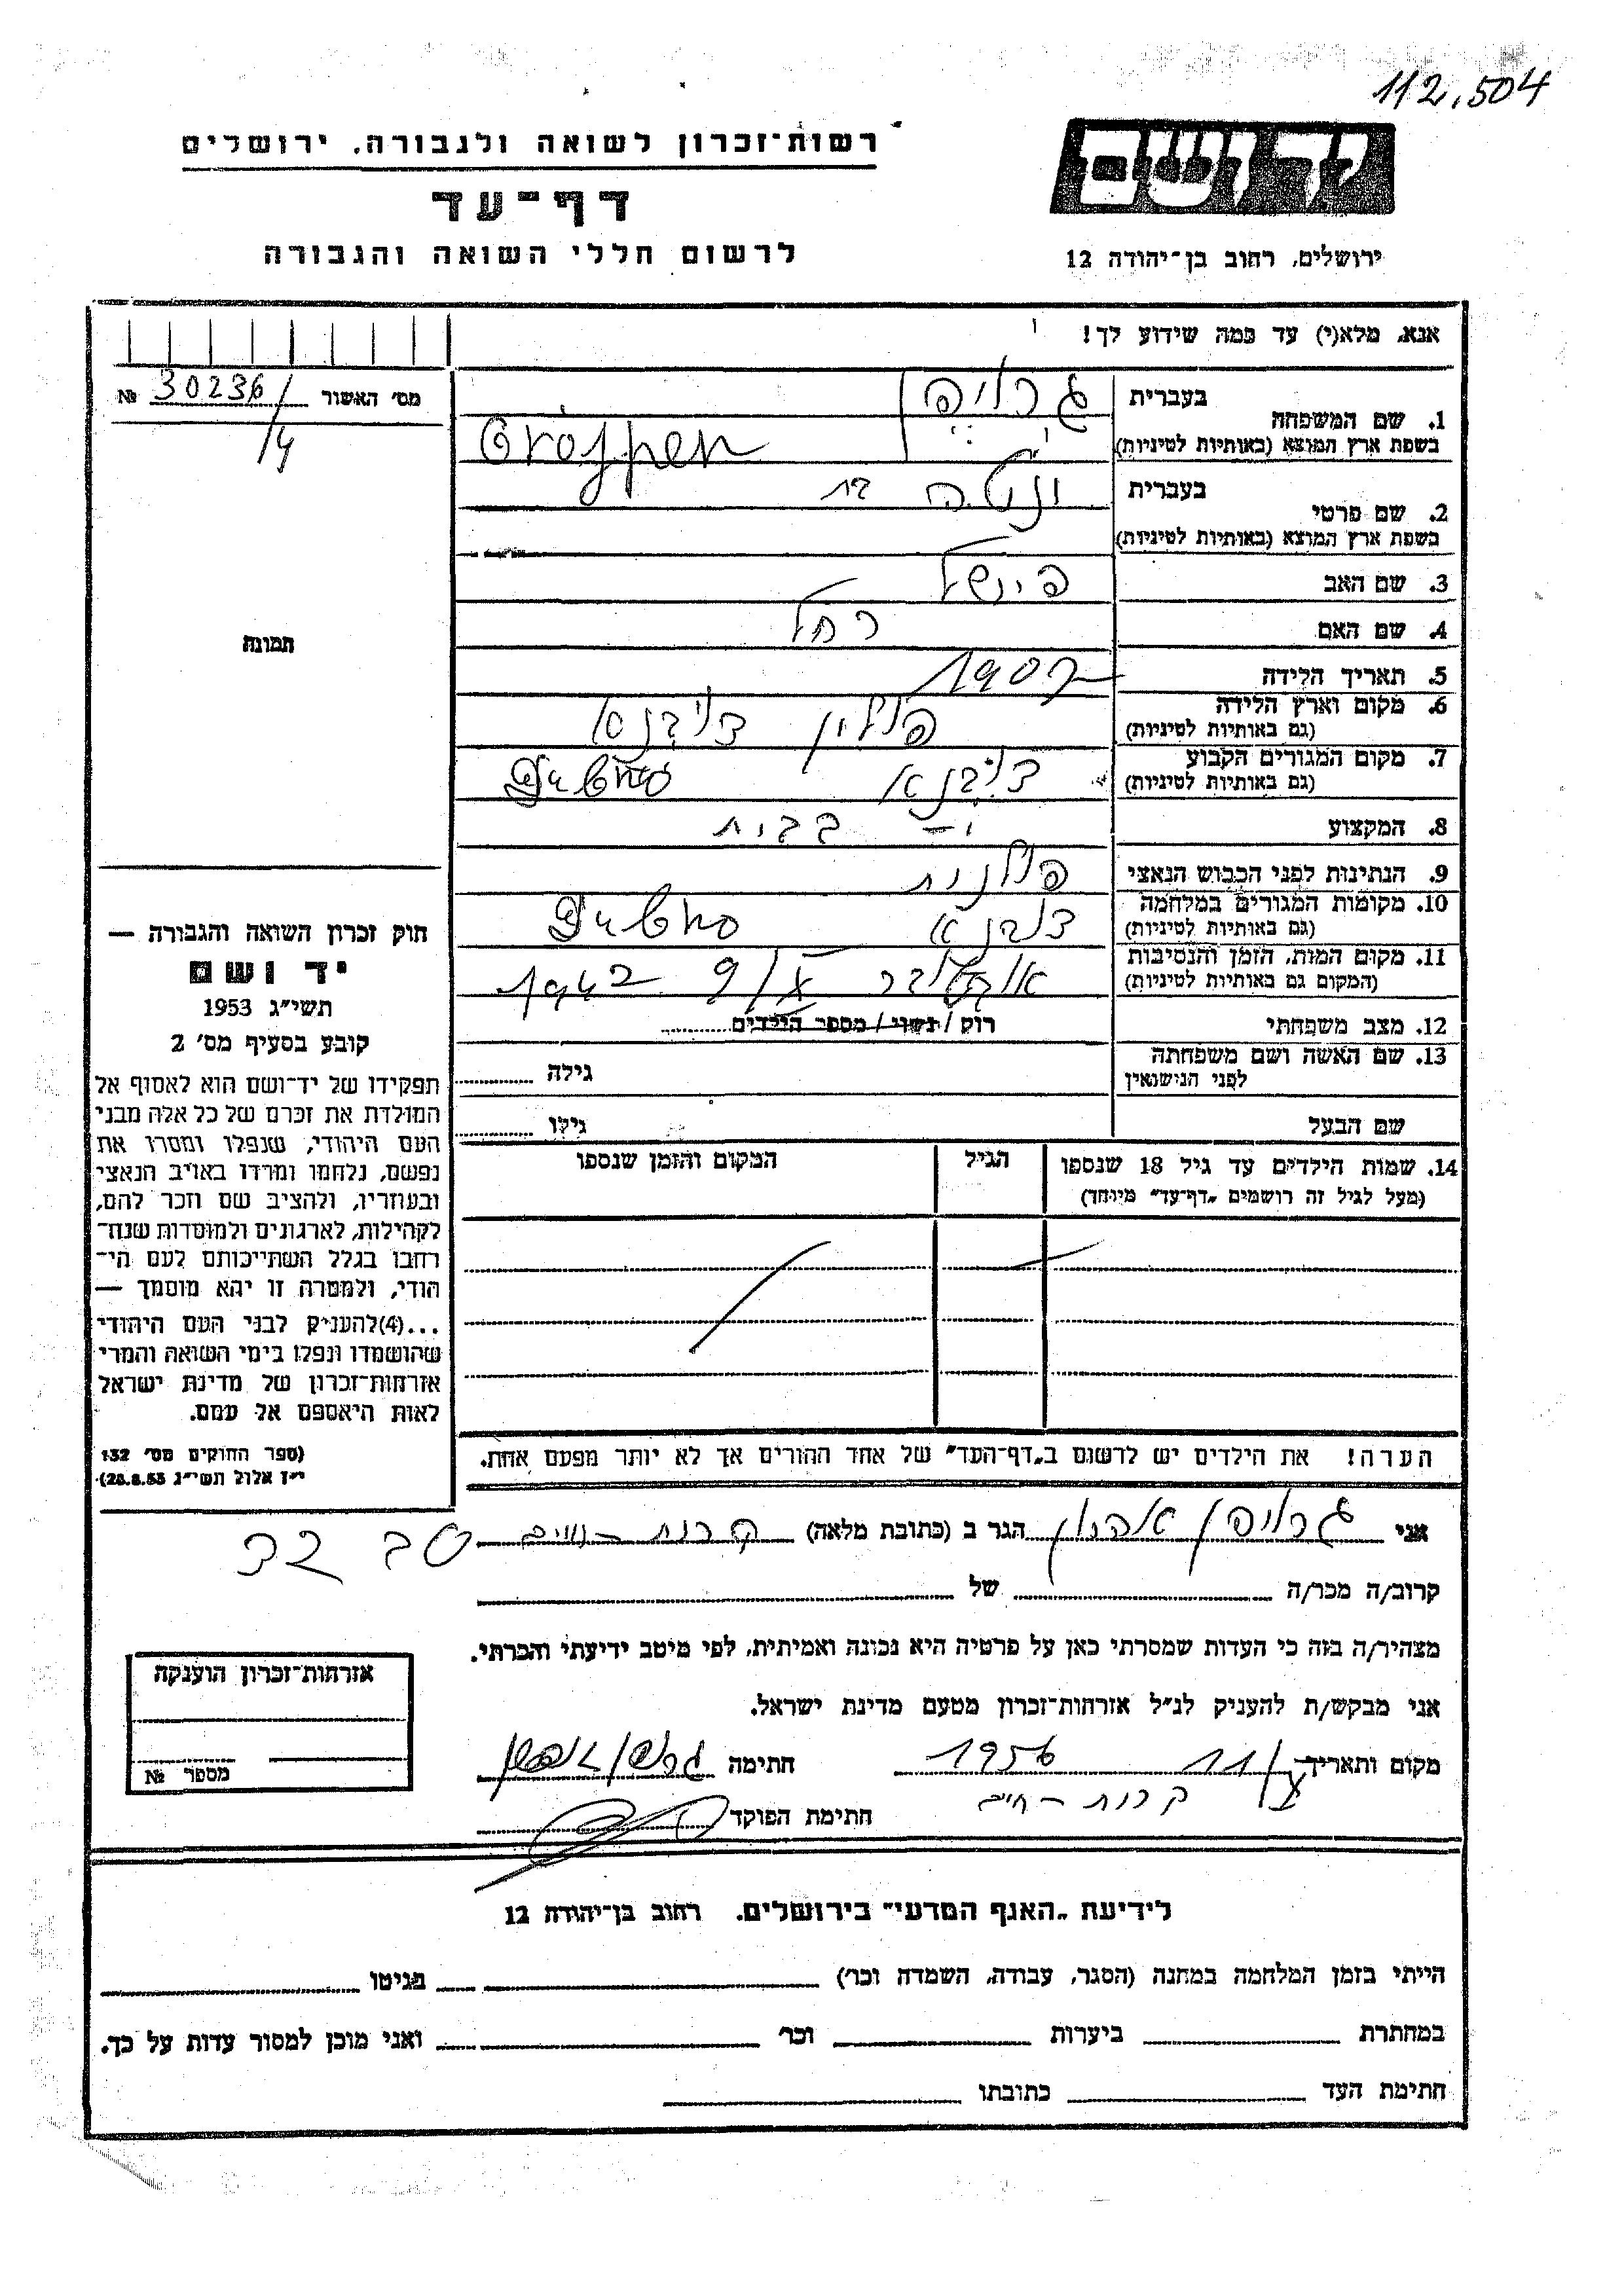 112.504
יד ושם
ירושלים, רחוב בן־יהודה 12
רשות־זכרון לשואה ולגבורה, ירושלים
דף־עד
לרשום חללי השואה והגבורה
אנא, מלא(י) עד כמה שידוע לך!
מס' האשור 30236/ №
4
1. שם המשפחה
בעברית גרויפן
בשפת ארץ המוצא (באותיות לטיניות) Gröjpen
2. שם פרטי
בעברית
בשפת ארץ המוצא (באותיות לטיניות)
3. שם האב פישל
4. שם האם רחל
5. תאריך הלידה 1907
6. מקום וארץ הלידה פולין
(גם באותיות לטיניות)
7. מקום המגורים הקבוע
(גם באותיות לטיניות)
8. המקצוע בבית
9. הנתינות לפני הכבוש הנאצי פולנית
10. מקומות המגורים במלחמה
(גם באותיות לטיניות)
11. מקום המות, הזמן והנסיבות אוקטובר 9/X 1942
(המקום גם באותיות לטיניות)
12. מצב משפחתי רוק / נשוי / מספר הילדים
13. שם האשה ושם משפחתה
לפני הנישואין
גילה
שם הבעל
גילו
14. שמות הילדים עד גיל 18 שנספו
(מעל לגיל זה רושמים „דף־עד" מיוחד)
הגיל
המקום והזמן שנספו
הערה! את הילדים יש לרשום ב„דף־העד" של אחד ההורים אך לא יותר מפעם אחת.
תמונה
חוק זכרון השואה והגבורה —
יד ושם
תשי"ג 1953
קובע בסעיף מס' 2
תפקידו של יד־ושם הוא לאסוף אל
המולדת את זכרם של כל אלה מבני
העם היהודי, שנפלו ומסרו את
נפשם, נלחמו ומרדו באויב הנאצי
ובעוזריו, ולהציב שם וזכר להם,
לקהילות, לארגונים ולמוסדות שנח־
רחבו בגלל השתייכותם לעם הי־
הודי, ולמטרה זו יהא מוסמך —
...(4)להעניק לבני העם היהודי
שהושמדו ונפלו בימי השואה והמרי
אזרחות־זכרון של מדינת ישראל
לאות היאספם אל עמם.
(ספר החוקים מס' 132
י"ז אלול תשי"ג 28.8.53)
אני גרויפן אהרון הגר ב (כתובת מלאה) קרית־חיים
קרוב/ה מכר/ה של
מצהיר/ה בזה כי העדות שמסרתי כאן על פרטיה היא נכונה ואמיתית, לפי מיטב ידיעתי והכרתי.
אני מבקש/ת להעניק לנ"ל אזרחות־זכרון מטעם מדינת ישראל.
מקום ותאריך 11/X 1956 חתימה גרויפן אהרון
קרית־חיים
חתימת הפוקד
אזרחות־זכרון הוענקה
מספר №
לידיעת „האגף המדעי" בירושלים, רחוב בן־יהודה 12
הייתי בזמן המלחמה במחנה (הסגר, עבודה, השמדה וכו') בגיטו
במחתרת ביערות וכו' ואני מוכן למסור עדות על כך.
חתימת העד כתובתו